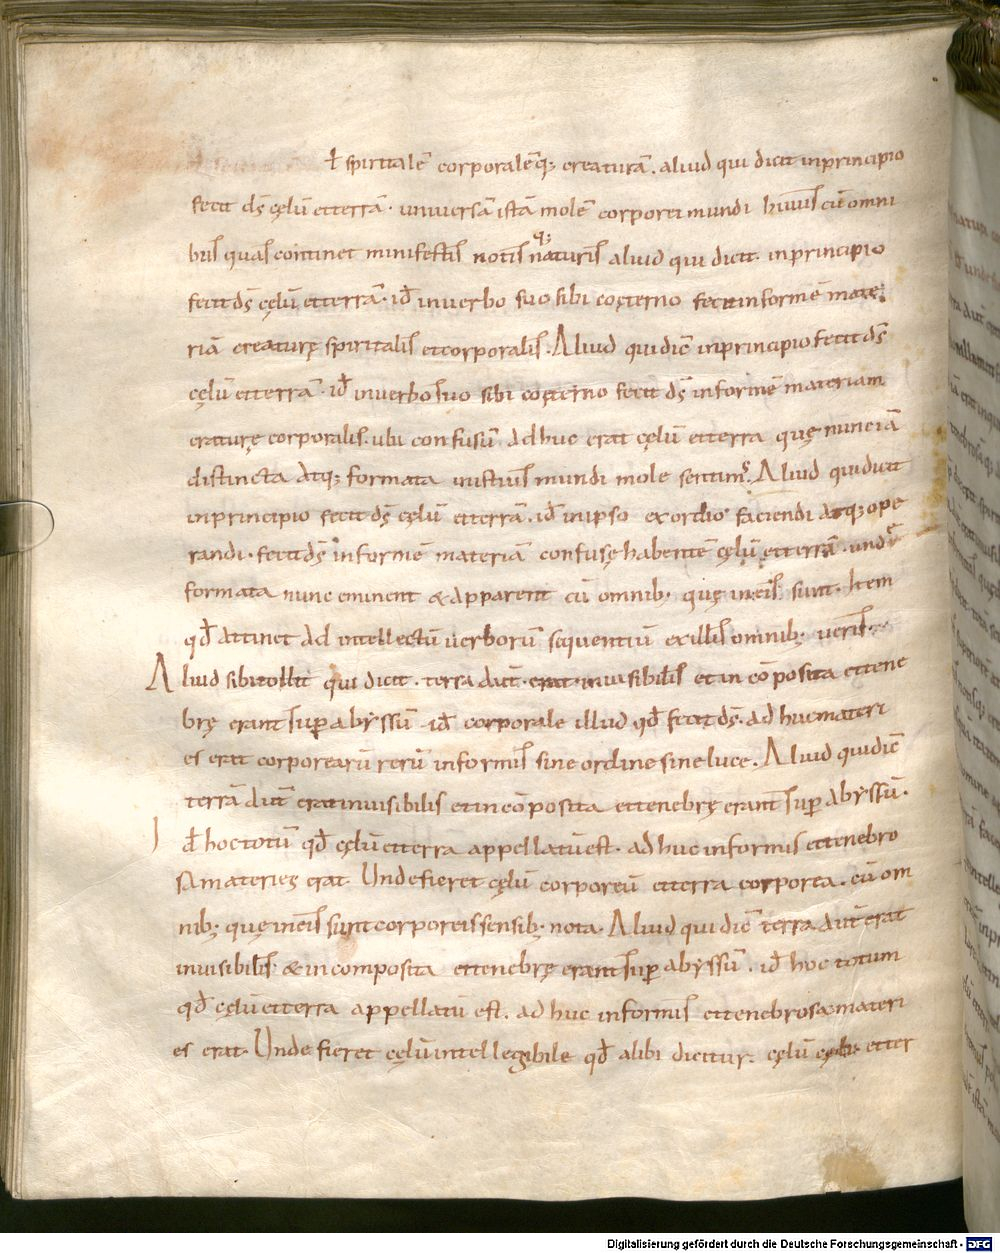 ł spiritalē corporalēq; creaturā. aliud qui dicit inprincipio
fecit d̄s cęlū etterrā. universā istā molē corporei mundi huius cū omni
bus quas continet minifestis notisq; naturis aliud qui dicit. inprincipio
fecit d̄s cęlū etterrā. id inverbo suo sibi coęterno fecit informē mate
riā creaturę spiritalis etcorporalis. Aliud quidic̄ inprincipio fecit d̄s
cęlū etterrā. id inverbo suo sibi coęterno fecit d̄s informē materiam
craturę corporalis. ubi confusū adhuc erat cęlū etterra quę nunc iā
distincta atq; formata inistius mundi mole sentim̄. Aliud quidicit
inprincipio fecit d̄s cęlū etterrā. id inipso exordio faciendi atq; ope
randi. fecit d̄s informē materiā confusę habentē cęlū etterrā. undę
formata nunc eminent & apparent cū omnib; quę ineis sunt. Item
qđ attinet ad intellectū verborū sequentiū exillis omnib; veris.
Aliud sibi tollit qui dicit. terra aut̄. erat. invisibilis et incōposita ettene
brę erant sup abyssū id corporale illud qđ fecit d̄s. adhuc materi
es erat corporearū rerū informis sine ordine sine luce. Aliud quidic̄
terrā aut̄ erat invisibilis et incōposita ettenebrę erant sup abyssū.
Id hoc totū qđ cęlū etterra appellatū est. adhuc informis ettenebro
sa materies erat. Unde fieret cęlū corporeū etterra corporea. cū om
nib; quę ineis sunt corporeis sensib; nota. Aliud quidic̄ terra aut̄ erat
invisibilis & incomposita ettenebrę erant sup abyssū. id hoc totum
qđ cęlū etterra appellatū est. adhuc informis ettenebrosa materi
es erat. Unde fieret cęlū intellegibile qđ alibi dicitur; cęlū cęli. etter